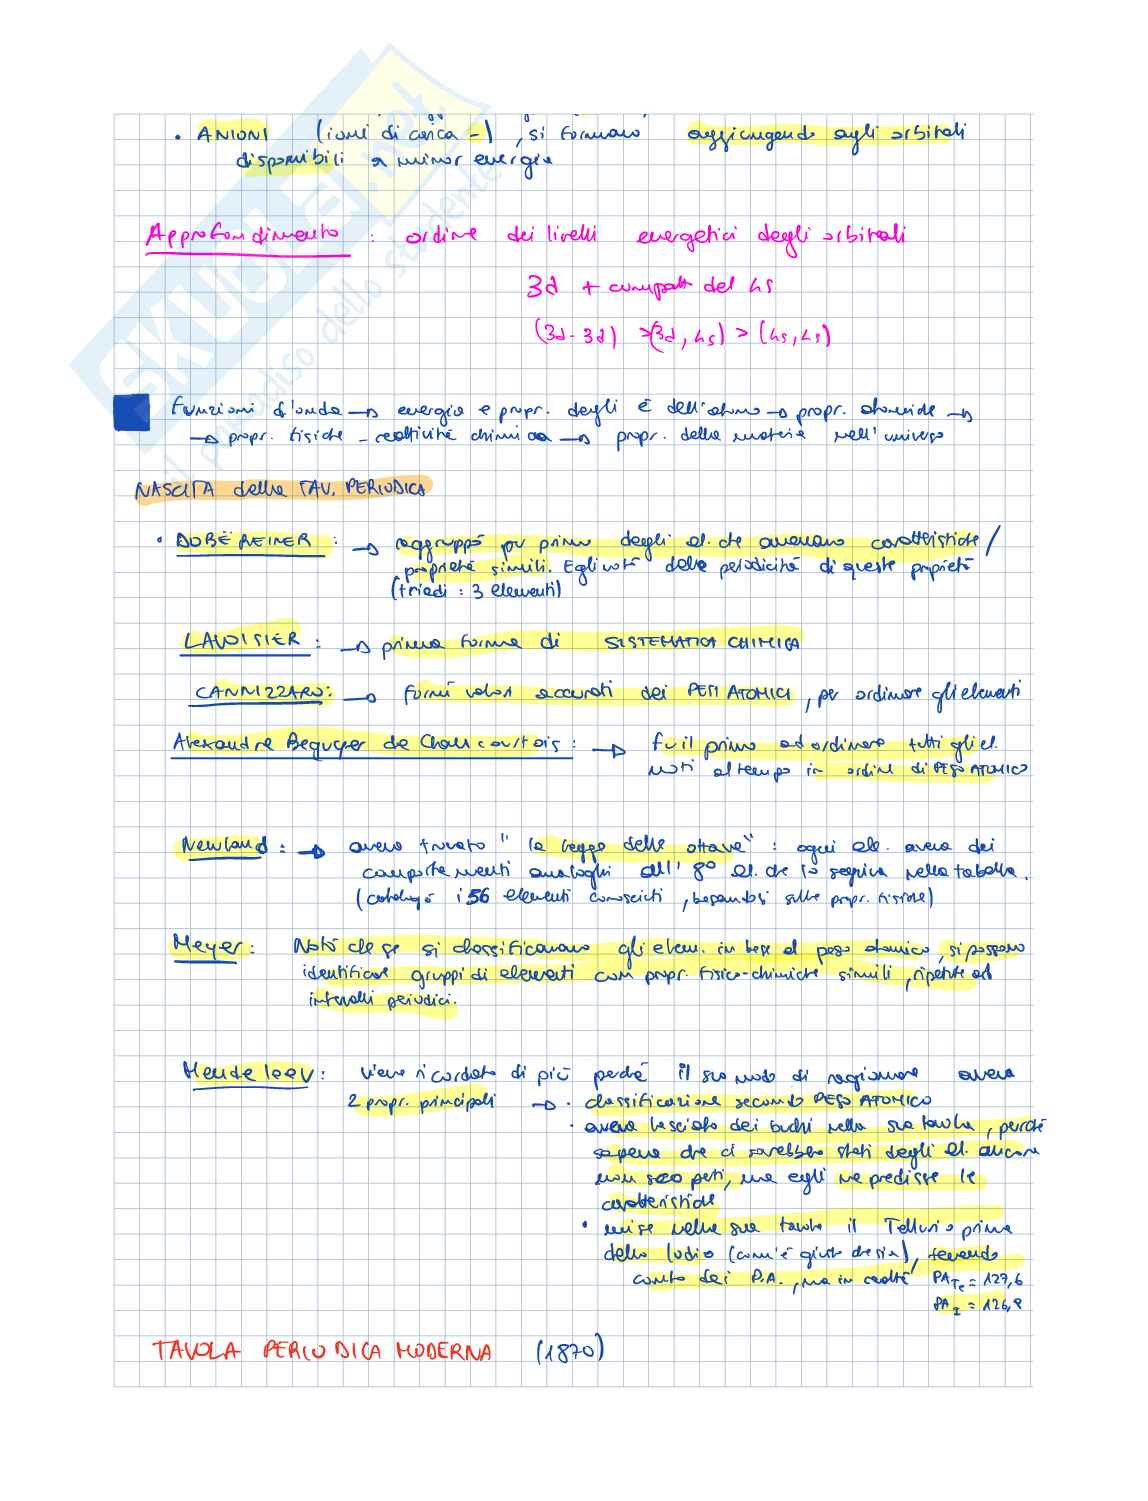 • ANIONI (ioni di carica -), si formano aggiungendo agli orbitali
disponibili a minor energia
Approfondimento : ordine dei livelli energetici degli orbitali
3d + compatt del 4s
(3d-3d) >(3d, 4s) > (4s, 4s)
Funzioni d'onda → energia e propr. degli e⁻ dell'atomo → propr. atomiche →
→ propr. fisiche - reattività chimica → propr. della materia nell'universo
NASCITA della TAV. PERIODICA
• DOBËREINER : → raggruppò per primo degli el. che avevano caratteristiche /
proprietà simili. Egli notò della periodicità di queste proprietà
(triadi : 3 elementi)
LAVOISIER : → prima forma di SISTEMATICA CHIMICA
CANNIZZARO: → fornì valori accurati dei PESI ATOMICI, per ordinare gli elementi
Alexandre Beguyer de Chancourtois : → fu il primo ad ordinare tutti gli el.
noti al tempo in ordine di PESO ATOMICO
Newland : → aveva trovato "la legge delle ottave" : ogni ele. aveva dei
comportamenti analoghi all' 8° el. che lo seguiva nella tabella.
(catalogò i 56 elementi conosciuti, basandosi sulle propr. fisiche)
Meyer : Notò che se si classificavano gli elem. in base al peso atomico, si possono
identificare gruppi di elementi con propr. fisico-chimiche simili, ripetute ad
intervalli periodici.
Mendeleev : viene ricordato di più perché il suo modo di ragionare aveva
2 propr. principali → • classificazione secondo PESO ATOMICO
• aveva lasciato dei buchi nella sua tavola, perché
sapeva che ci sarebbero stati degli el. ancora
non scoperti, ma egli ne predisse le
caratteristiche
• mise nella sua tavola il Tellurio prima
dello Iodio (com'è giusto che sia), tenendo
conto dei P.A., ma in realtà PA Te = 127,6
PA I = 126,9
TAVOLA PERIODICA MODERNA (1870)
SKUOLA.net
il paradiso dello studente